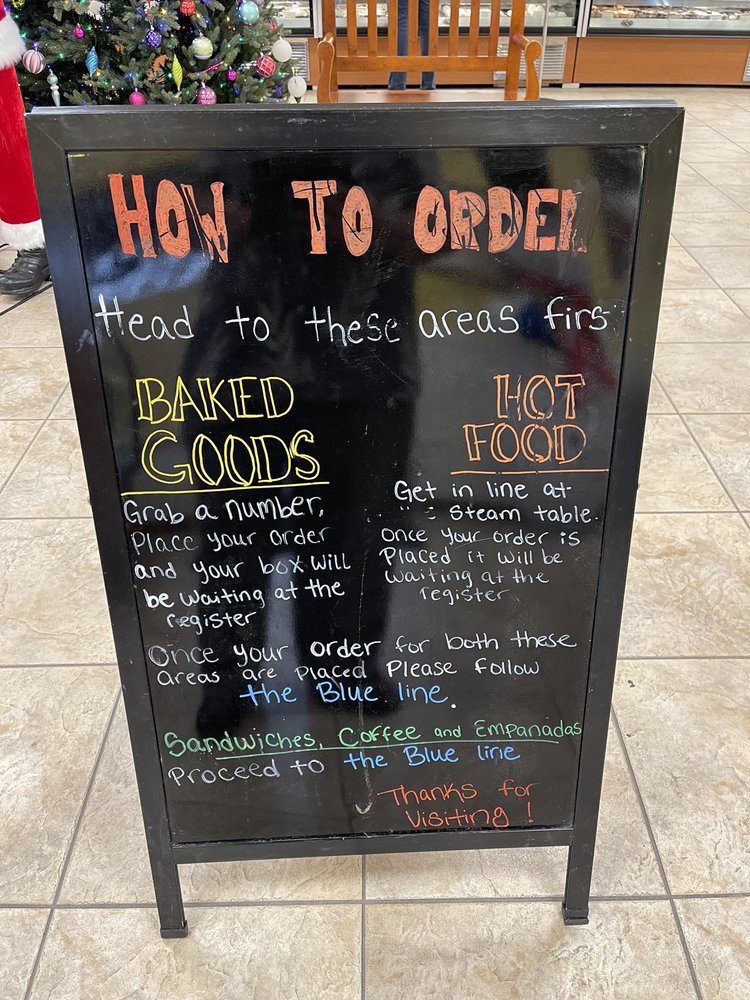 HOW TO ORDER
Head to these areas firs
BAKED
GOODS
Grab a number,
Place your order
and your box will
be waiting at the
register
HOT
FOOD
Get in line at
Steam table.
once your order is
Placed it will be
waiting at the
register
Once your order for both these
areas are placed Please follow
the Blue line.
Sandwiches, Coffee and Empanadas
Proceed to the Blue line
Thanks for
Visiting !